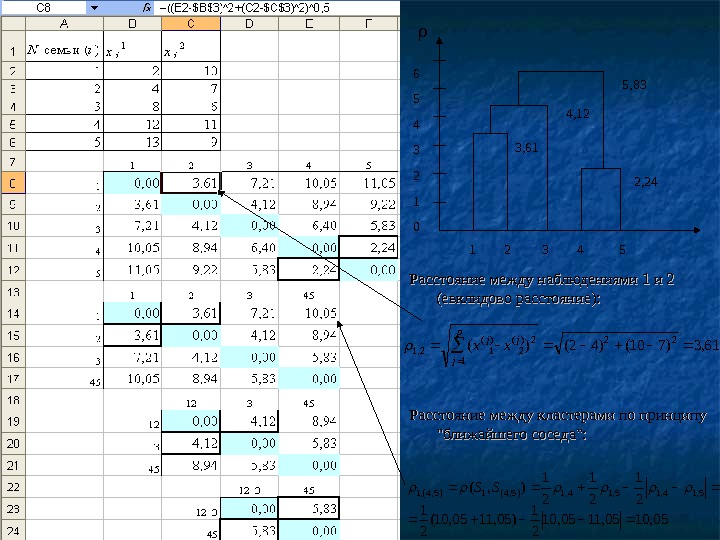 C8 fx =((B2-$B$3)^2+(C2-$C$3)^2)^0,5
A B C D E F
1 N семьи (i) x i 1 x i 2
2 1 2 10
3 2 4 7
4 3 8 6
5 4 12 11
6 5 13 9
7 1 2 3 4 5
8 1 0,00 3,61 7,21 10,05 11,05
9 2 3,61 0,00 4,12 8,94 9,22
10 3 7,21 4,12 0,00 6,40 5,83
11 4 10,05 8,94 6,40 0,00 2,24
12 5 11,05 9,22 5,83 2,24 0,00
13 1 2 3 45
14 1 0,00 3,61 7,21 10,05
15 2 3,61 0,00 4,12 8,94
16 3 7,21 4,12 0,00 5,83
17 45 10,05 8,94 5,83 0,00
18 12 3 45
19 12 0,00 4,12 8,94
20 3 4,12 0,00 5,83
21 45 8,94 5,83 0,00
22 12 3 45
23 12 3 0,00 5,83
24 45 5,83 0,00
ρ
6
5
4
3
2
1
0
5,83
4,12
3,61
2,24
1 2 3 4 5
Расстояние между наблюдениями 1 и 2
(евклидово расстояние):
ρ1,2 = √∑(x1(j) − x2(j))2 = √(2−4)2 + (10−7)2 = 3,61
Расстояние между кластерами по принципу
"ближайшего соседа":
ρ1,(4,5) = ρ(S1,S(4,5)) = 1/2 ρ1,4 + 1/2 ρ1,5 − 1/2 |ρ1,4 − ρ1,5| =
= 1/2 (10,05 + 11,05) − 1/2 |10,05 − 11,05| = 10,05